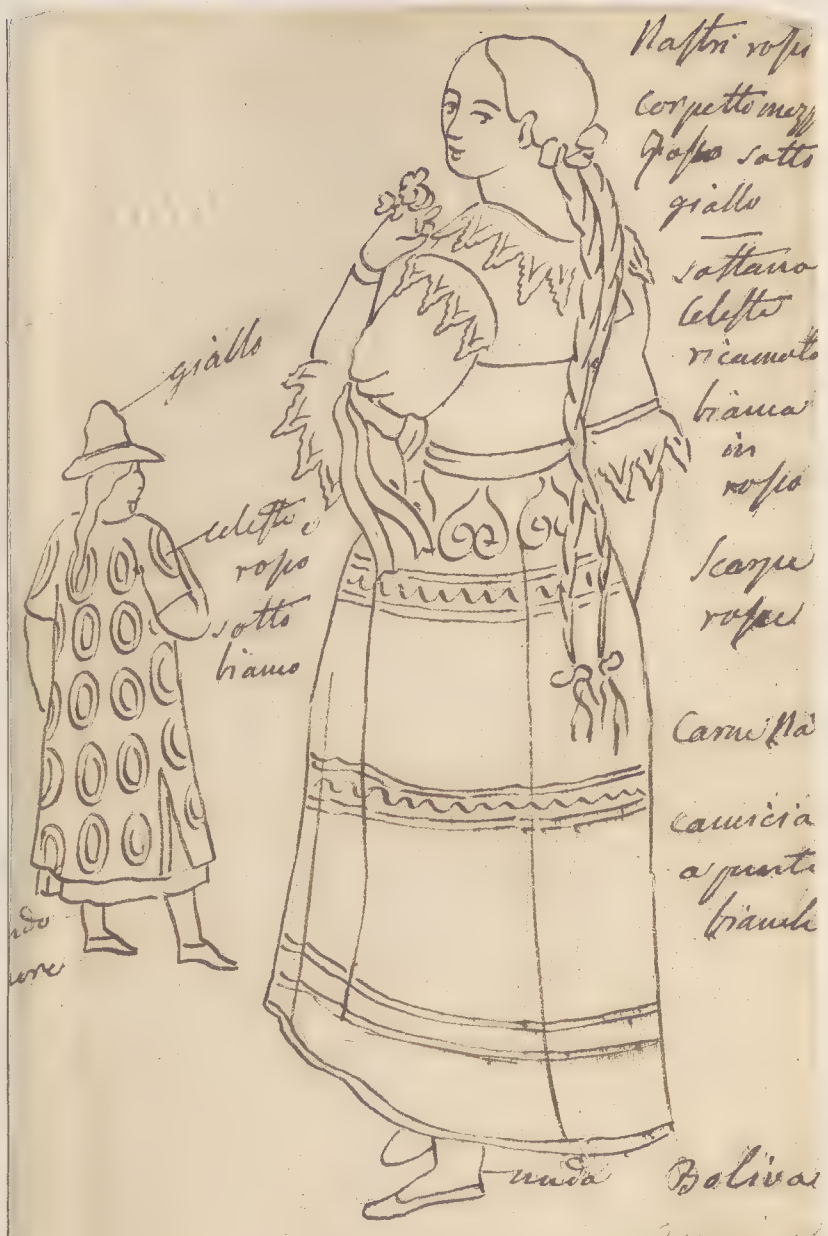 Nastri rossi
corpetto mezz
rosso sotto
giallo
sottana
celeste
ricamata
bianca
in
rosso
Scarpe
rosse
Carne
camicia
a punte
bianche
giallo
celeste e
rosso
sotto
bianco
nuda
Boliva